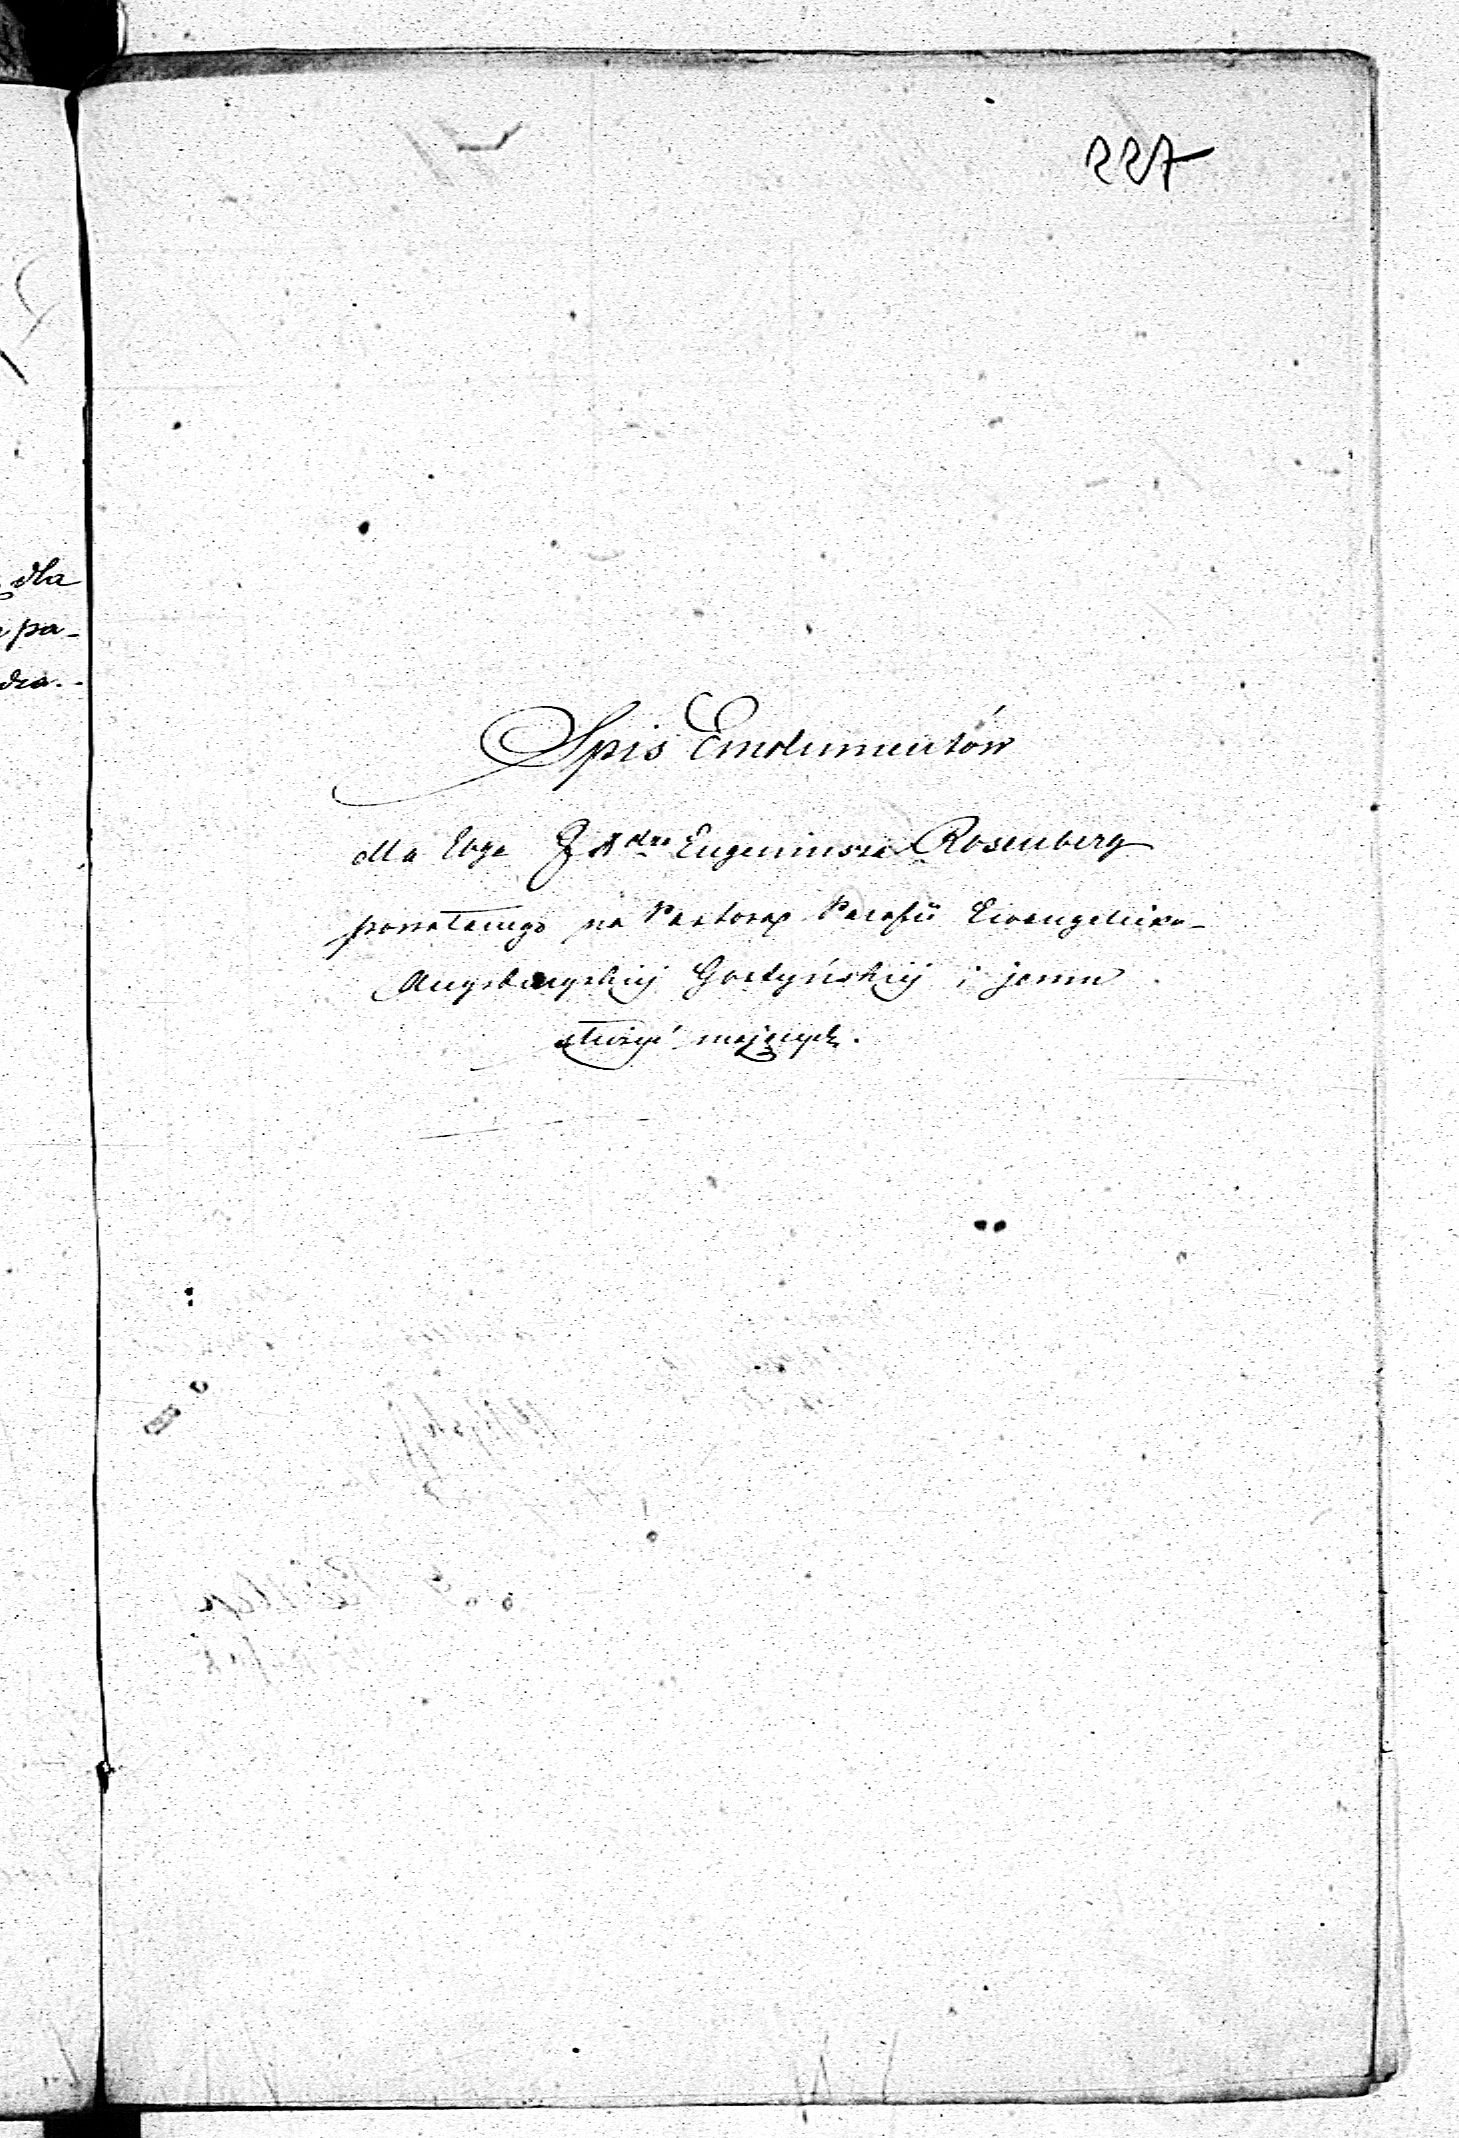 227
dla
pa-
dza.-
Spis Emolumentów
dla Xdza Eugeniusza Rosenberg
powołanego na Pastora Parafii Ewangelicko-
Augsburgskiej Gostyńskiej i jemu
służyć mających.